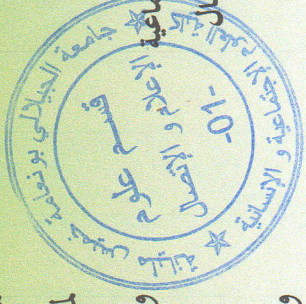 جامعة الجيلالي بونعامة خميس مليانة
كلية العلوم الاجتماعية و الإنسانية
قسم علوم
الإعلام و الإتصال
-01-